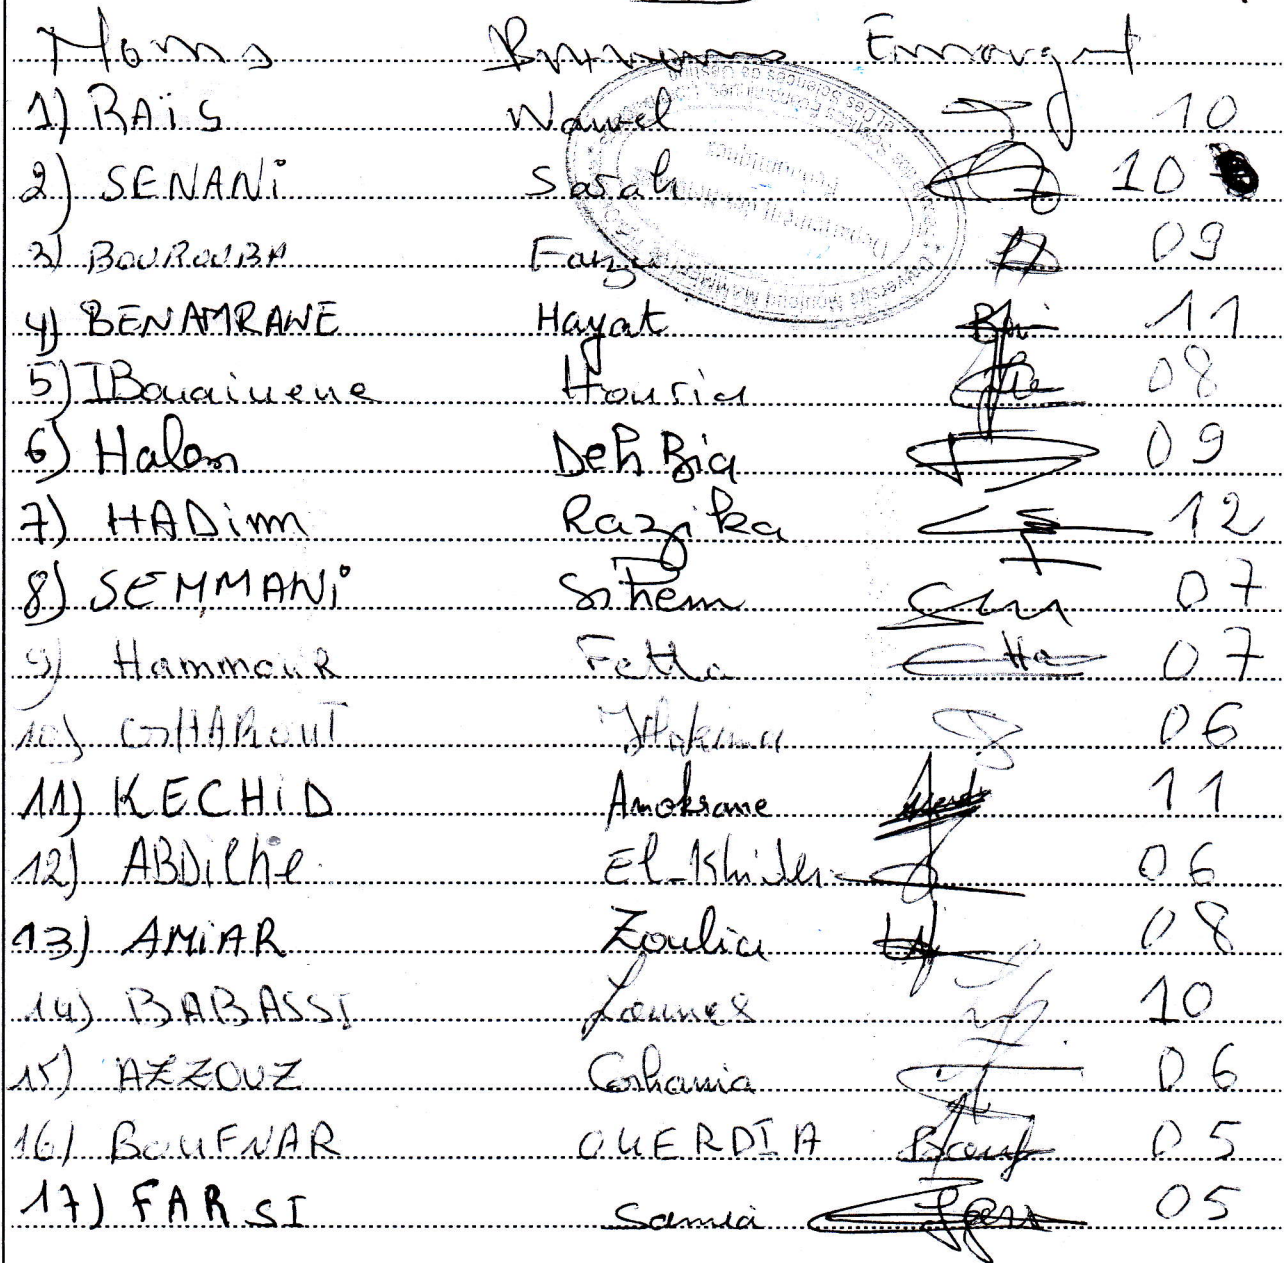 Noms Prénoms Emargt
1) RAIS Nawel 10
2) SENANI Sarah 10
3) BOUROUBA Fazia 09
4) BENAMRANE Hayat 11
5) IBouaiuene Houria 08
6) Halem DehBia 09
7) HADim Razika 12
8) SEMMANI Sihem 07
9) HammouR Fetta 07
10) GHAROUT Hakima 06
11) KECHID Amokrane 11
12) ABDilhe El-Khider 06
13) AMIAR Zoulia 08
14) BABASSI Lounes 10
15) AZZOUZ Ghania 06
16) BOUFNAR OUERDIA 05
17) FARSI Samia 05